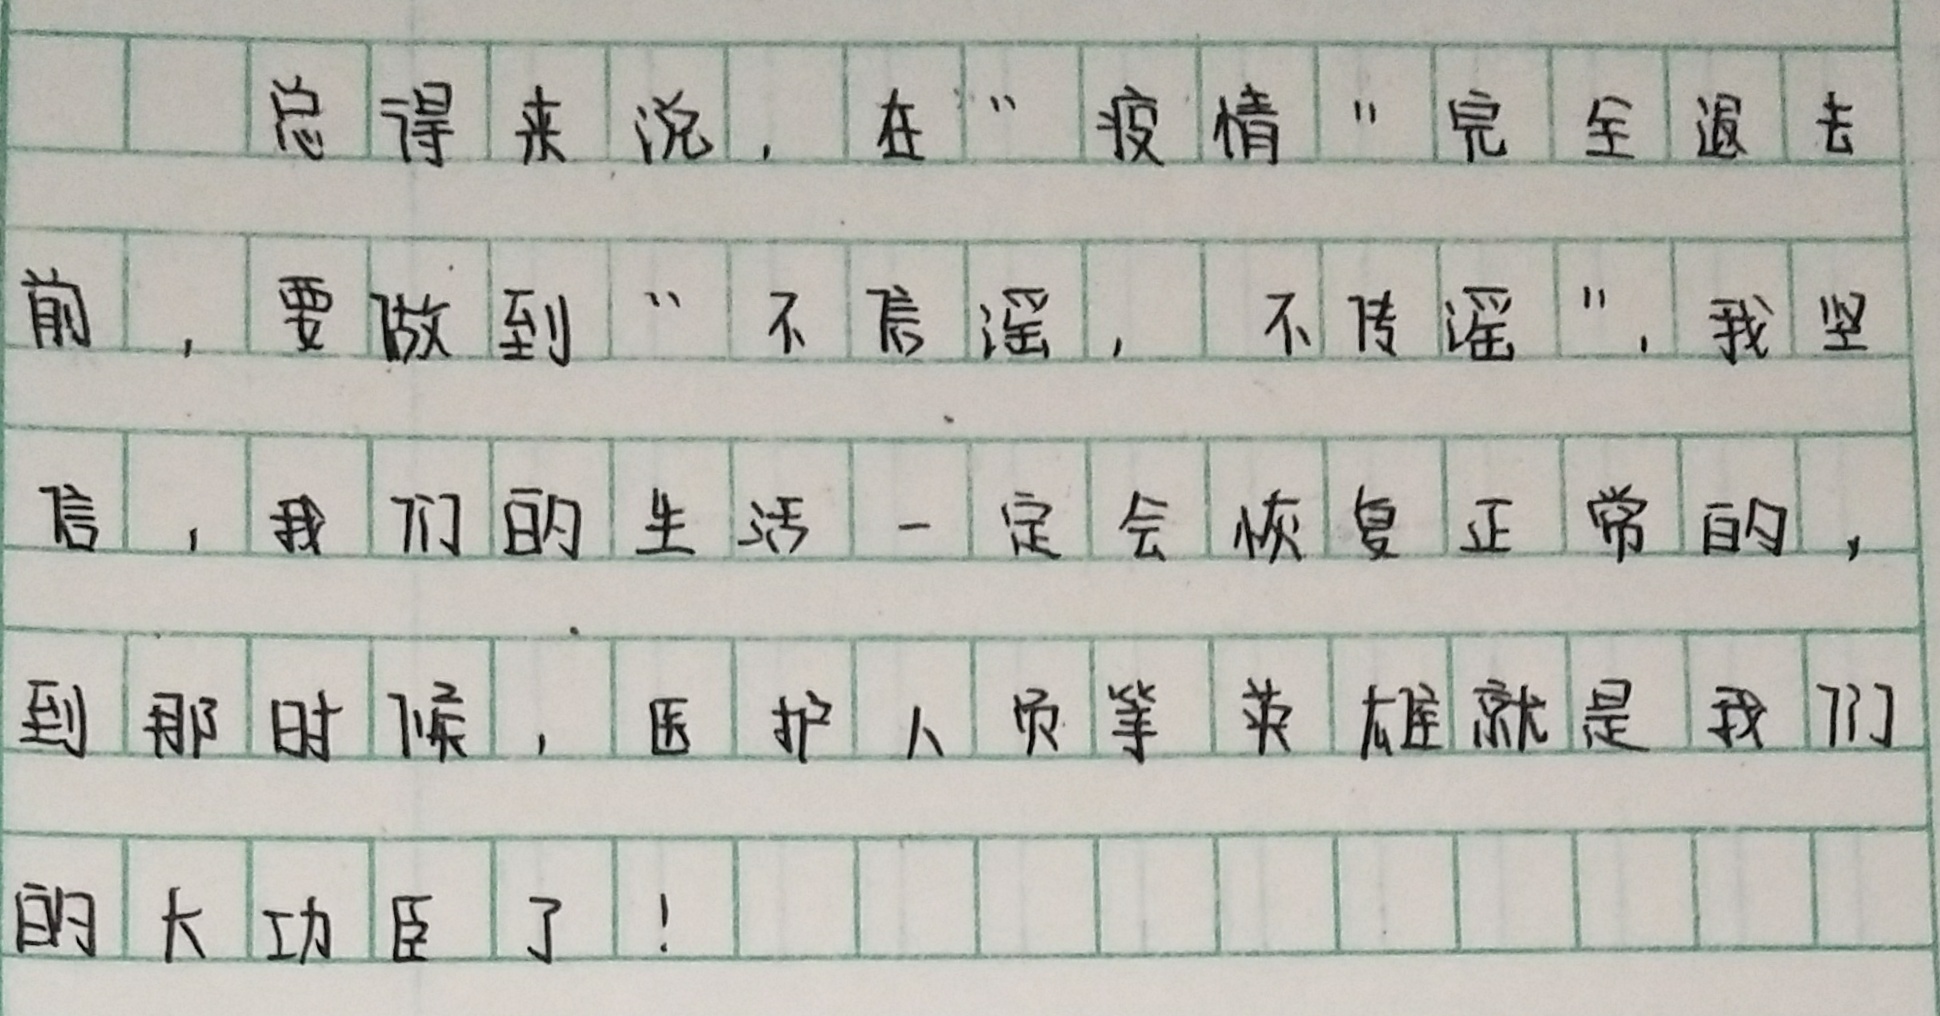 总得来说，在“疫情”完全退去
前，要做到“不信谣，不传谣”，我坚
信，我们的生活一定会恢复正常的，
到那时候，医护人员等英雄就是我们
的大功臣了！